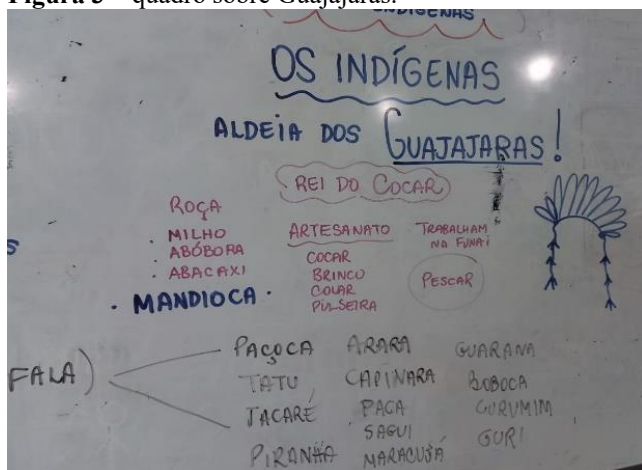 Figura 3 – quadro sobre Guajajaras.
INDÍGENAS
OS INDÍGENAS
ALDEIA DOS GUAJAJARAS!
REI DO COCAR
ROÇA
. MILHO
. ABÓBORA
. ABACAXI
. MANDIOCA .
ARTESANATO
COCAR
BRINCO
COLAR
PULSEIRA
TRABALHAM
NA FUNAI
PESCAR
S
FALA)
PAÇOCA
TATU
JACARÉ
PIRANHA
ARARA
CAPIVARA
PACA
SAGUI
MARACUJÁ
GUARANA
BOBOCA
CURUMIM
GURI